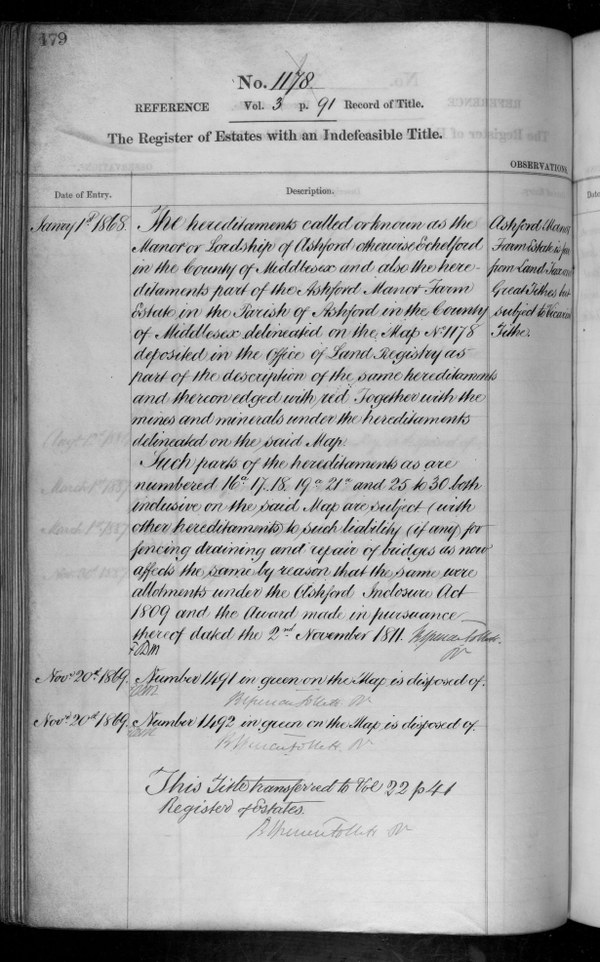 179
No. 1178
REFERENCE Vol. 3 p. 91 Record of Title.
The Register of Estates with an Indefeasible Title.
OBSERVATIONS.
Date of Entry.
Description.
Janry 1st 1868.
The hereditaments called or known as the
Manor or Lordship of Ashford otherwise Echelford
in the County of Middlesex and also the here-
ditaments part of the Ashford Manor Farm
Estate in the Parish of Ashford in the County
of Middlesex delineated on the Map No 1178
deposited in the Office of Land Registry as
part of the description of the same hereditaments
and thereon edged with red Together with the
mines and minerals under the hereditaments
delineated on the said Map.
Ashford Manor
Farm Estate is
from Land Tax
Great Tithes but
subject to
Tithe.
Such parts of the hereditaments as are
numbered 16a 17. 18. 19a 21a and 25 to 30 both
inclusive on the said Map are subject (with
other hereditaments) to such liability (if any) for
fencing draining and repair of bridges as now
affects the same by reason that the same were
allotments under the Ashford Inclosure Act
1809 and the Award made in pursuance
thereof dated the 2nd November 1811.
Novr 20th 1869. Number 1491 in green on the Map is disposed of.
Novr 20th 1869. Number 1492 in green on the Map is disposed of.
This Title transferred to Vol 22 p 41
Register of Estates.